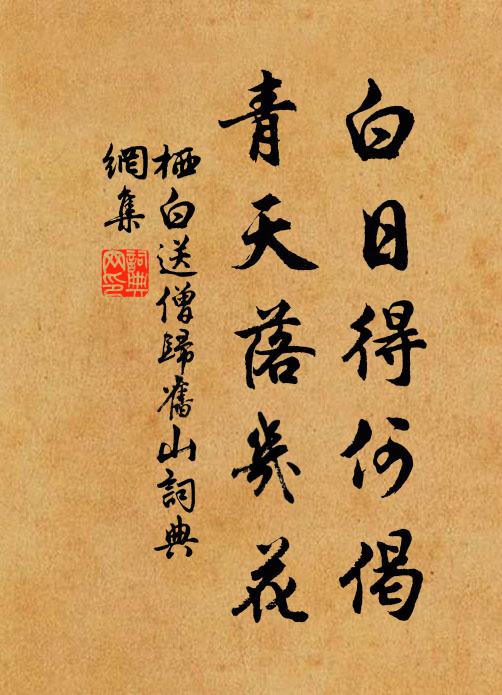 白日得何偈
青天落幾花
栖白送僧歸舊山詞典
網集
詞典網印